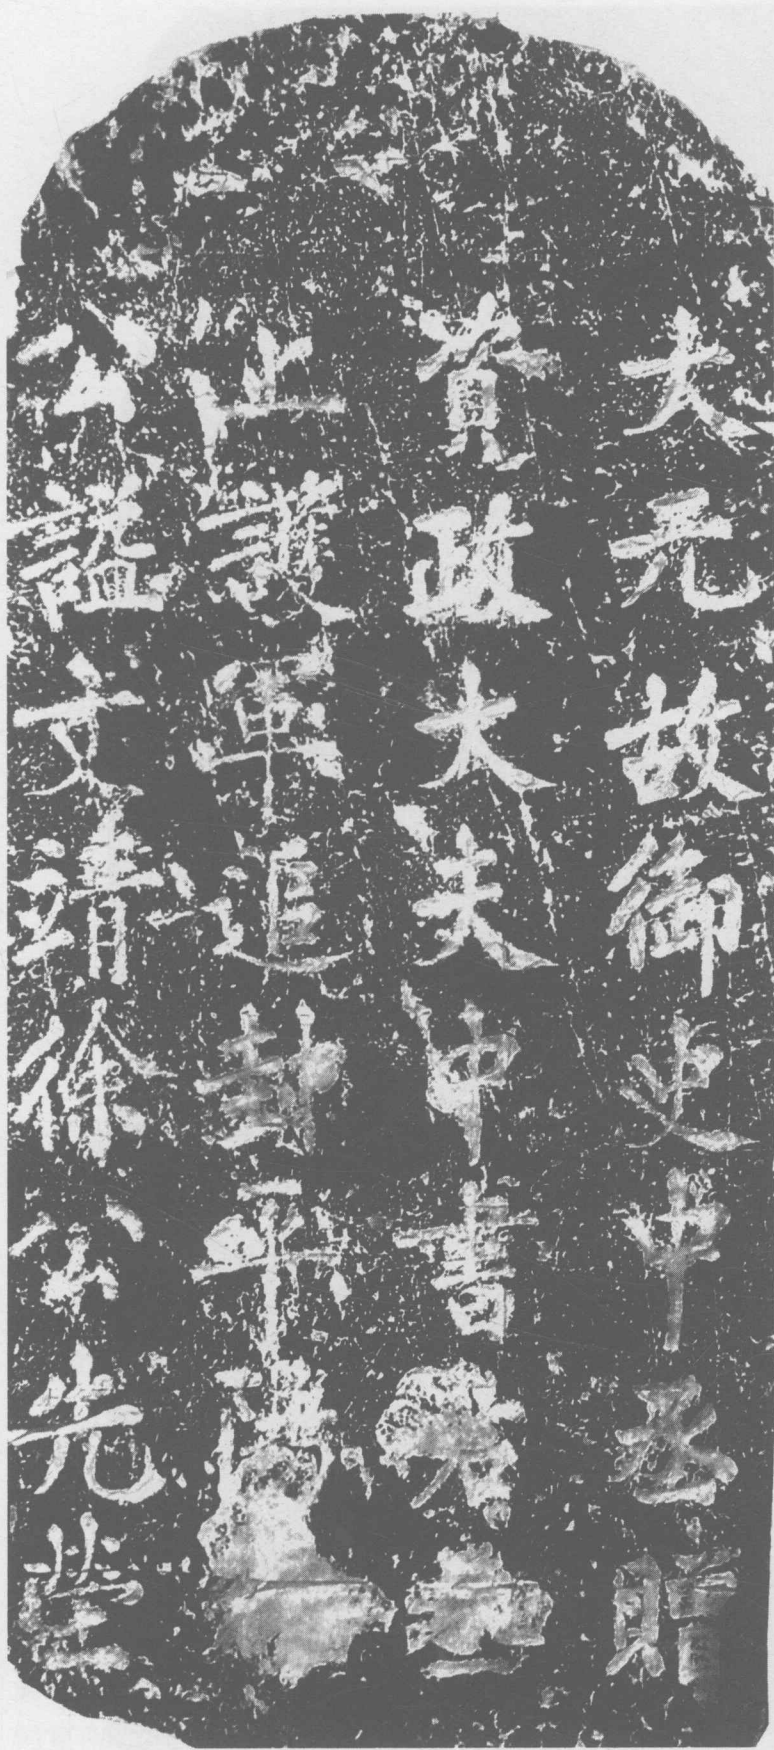 大元故御史中丞贈
資政大夫中書左丞
上護軍追封平陽
公謚文靖徐公先塋